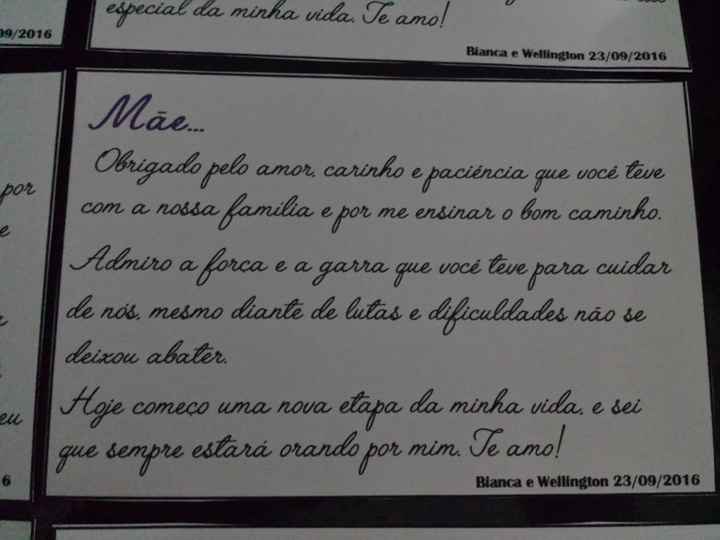 especial da minha vida. Te amo!
09/2016
Bianca e Wellington 23/09/2016
Mãe...
Obrigado pelo amor, carinho e paciência que você teve
com a nossa família e por me ensinar o bom caminho.
Admiro a força e a garra que você teve para cuidar
de nós, mesmo diante de lutas e dificuldades não se
deixou abater.
Hoje começo uma nova etapa da minha vida, e sei
que sempre estará orando por mim. Te amo!
Bianca e Wellington 23/09/2016
por
e
eu
6